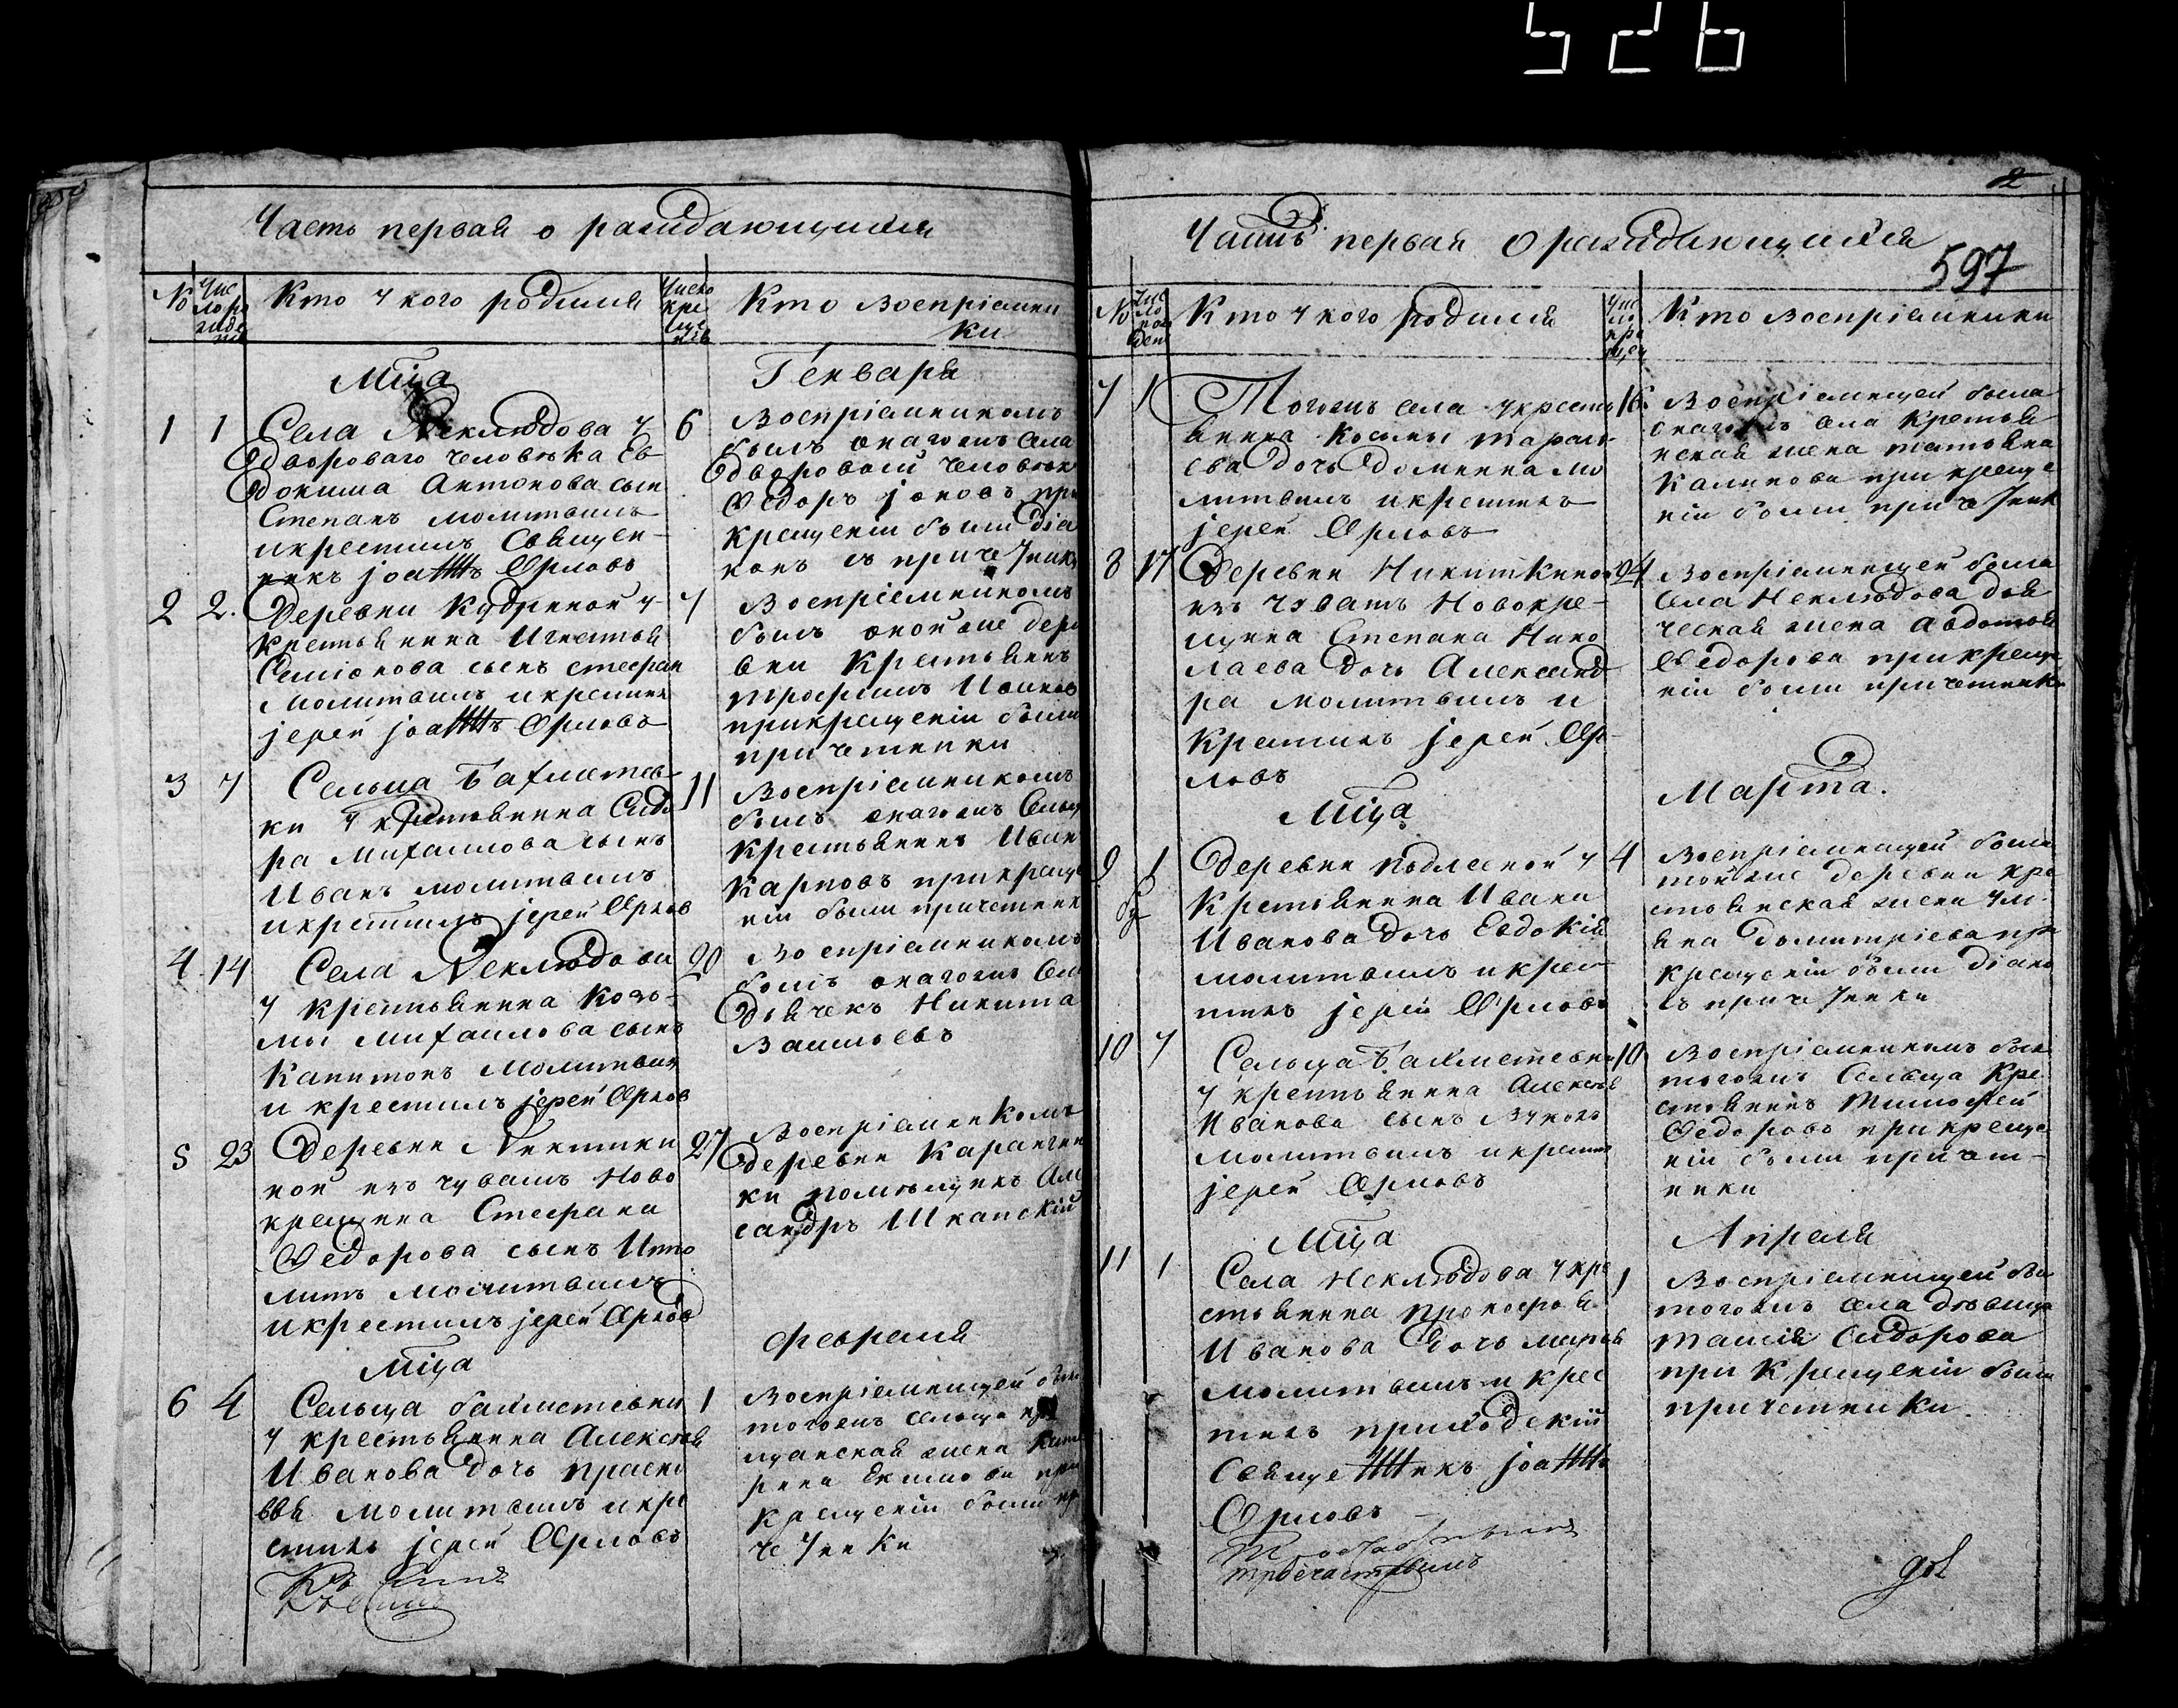 526
Часть первая о раждающихся
№
Чис
ло ро
жде
нія
Кто у кого родился
Число
кре
ще
нія
Кто воспріемни
ки
Мца
Генваря
1 1 Села Неклюдова у
двороваго человѣка Ев-
докима Антонова сын
Степанъ молитвилъ
икрестилъ Священ-
никъ јоаннъ Орловъ
6 Воспріемникомъ
былъ онагожъ села
дворовой человѣк
Ѳедоръ јаковъ при
крещеніи были діа
конъ съ причетник
2 2. Деревни Кудриной у
крестьянина Игнатья
Симіонова сынъ стефан
молитвилъ икрестил
јерей јоаннъ Орловъ
7 Воспріемникомъ
былъ оной же дере
вни Крестьянинъ
трофимъ Ивановъ
прикрещеніи были
причетники
3 7 Сельца Бахметев-
ки у крестьянина Сидо
ра Михаилова сынъ
Иванъ молитвилъ
икрестилъ јерей Орлов
11 Воспріемникомъ
былъ онагожъ Сельц
крестьянинъ Иван
Карповъ прикреще
ніи были причетник
4. 14 Села Неклюдова
у крестьянина Козь-
мы Михаилова сынъ
Капитонъ молитвил
и крестилъ јерей Орлов
20 Воспріемникомъ
былъ онагожъ Сел
дьячекъ Никита
Васильевъ
5 23 Деревни Никитки
ной изъ чувашъ Ново
крещена Стефана
Ѳедорова сынъ Иппо
литъ молитвилъ
икрестилъ јерей Орлов
27 Воспріемникомъ
деревни Карангин
ки помѣщикъ Але
сандръ Шкапскій
Мца
Февраля
6 4 Сельца бахметевки
у крестьянина Алексѣя
Иванова дочь праско
вья молитвилъ икре
стилъ јерей Орловъ
1 Воспріемницей была
тогожъ сельца
жена Кате
рина при
крещеніи были пр
четники
2
Часть первая о раждающихся
597
№
Чис
ло
рож
дені
Кто у кого родился
Чис
ло
кре
щен
Кто воспріемники
7 1 Тогожъ села укресть
янина Космы тарась-
ева дочь домника мо
литвилъ икрестилъ
јерей Орловъ
16. Воспріемницей была
онагожъ села крестья
нская жена татьяна
Калинова при креще
ніи были причетник
8 17 Деревни Никиткиной
изъ чувашъ Новокре-
щена Степана Нико
лаева дочь Александ
ра молитвилъ и
крестилъ јерей Ор-
ловъ
24 Воспріемницей была
Села Неклюдова дья
ческая жена авдотья
Ѳедорова прикреще
ніи были причетники
Мца
Марта.
9 1 Деревни подлесной у
Крестьянина Ивана
Иванова дочь Евдокія
молитвилъ икрес
тилъ јерей Орловъ
4 Воспріемницей была
той же деревни кре
стьянская жена Уль
яна дмитріева при
крещеніи были діако
съ причетники
10 7 Сельца Бахметевки
у крестьянина Алексѣя
Иванова сынъ Вуколъ
молитвилъ икрестил
јерей Орловъ
10 Воспріемникомъ былъ
тогожъ Сельца Кре
стьянинъ Тимофей
Ѳедоровъ прикреще
ніи были причет-
ники
Мца
Апреля
11 1 Села Неклюдова укре
стьянина прокофья
Иванова дочь марья
молитвилъ и крес
тилъ приходскій
Священникъ јоаннъ
Орловъ
1 Воспріемницей была
тогожъ села дѣвица
Сидорова
при Крещеніи были
причетники.